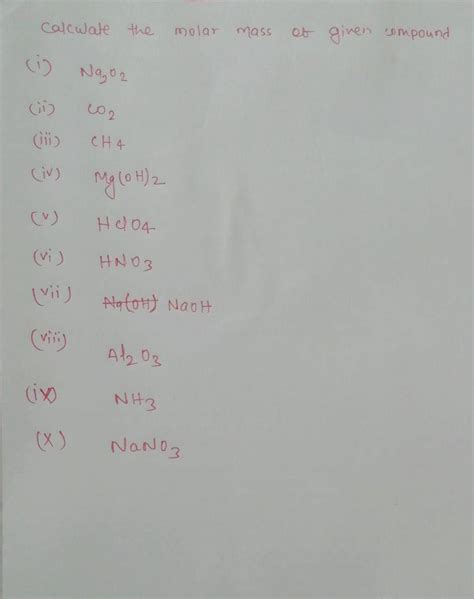 Calculate the molar mass of given compound
(i) Na2O2
(ii) CO2
(iii) CH4
(iv) Mg(OH)2
(v) HClO4
(vi) HNO3
(vii) Na(OH) NaOH
(viii) Al2O3
(ix) NH3
(X) NaNO3